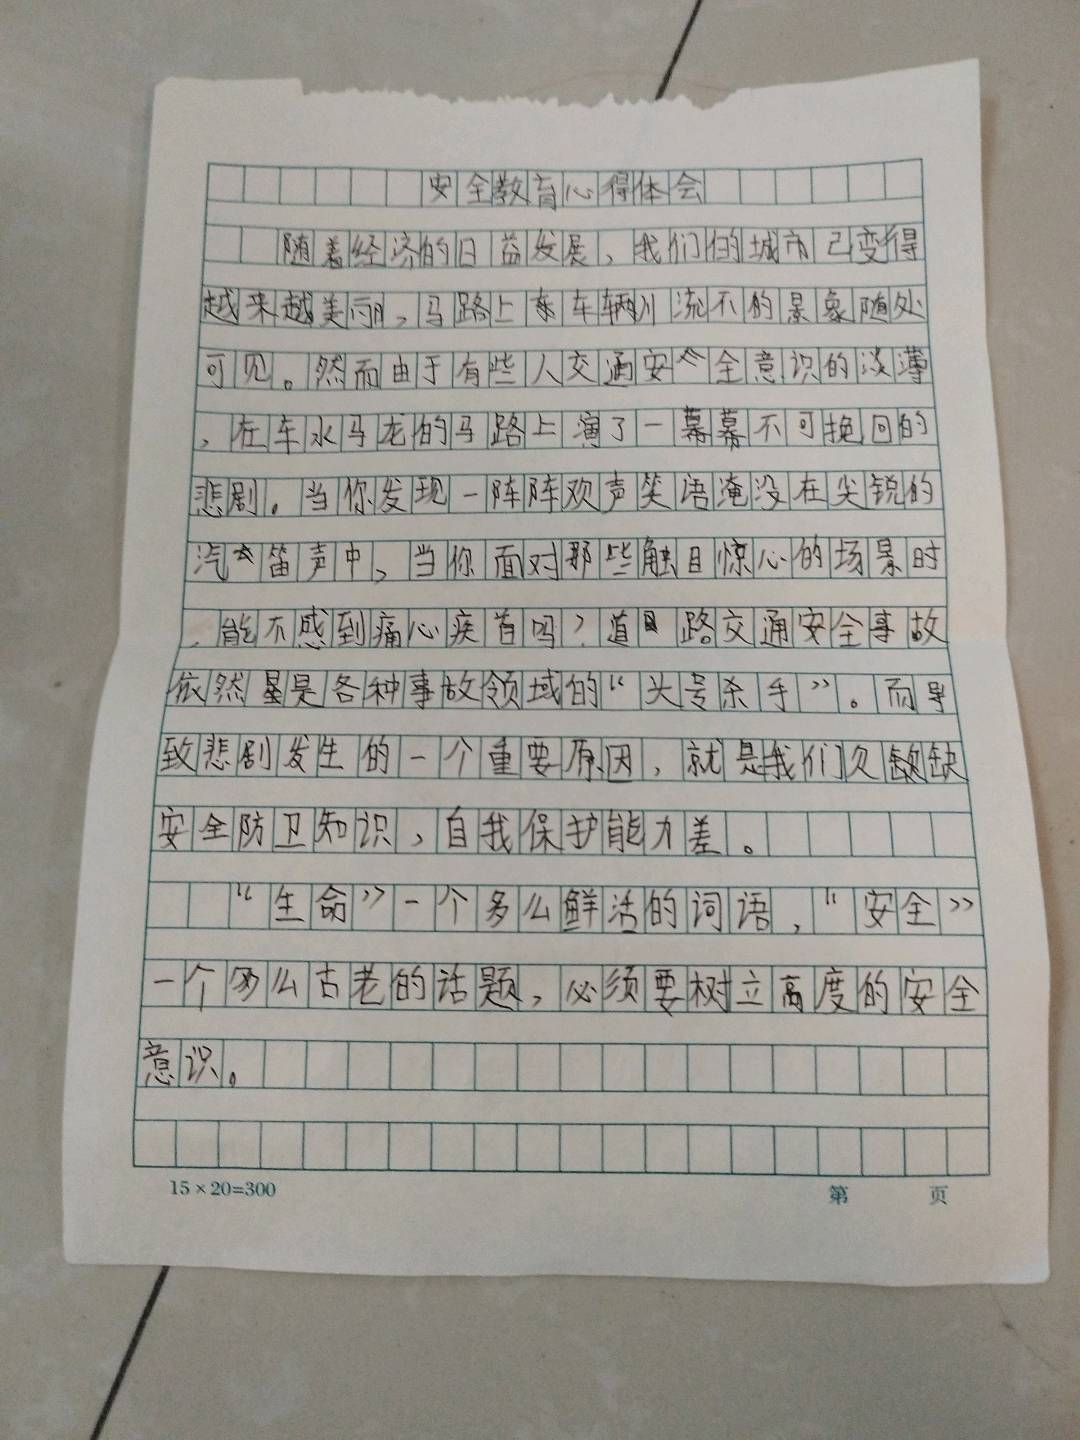 安全教育心得体会
随着经济的日益发展，我们的城市已变得
越来越美丽，马路上车辆川流不的景象随处
可见。然而由于有些人交通安全意识的淡薄
，在车水马龙的马路上演了一幕幕不可挽回的
悲剧。当你发现一阵阵欢声笑语淹没在尖锐的
汽笛声中，当你面对那些触目惊心的场景时
，能不感到痛心疾首吗？道路交通安全事故
依然是各种事故领域的“头号杀手”。而导
致悲剧发生的一个重要原因，就是我们欠缺
安全防卫知识，自我保护能力差。
“生命”一个多么鲜活的词语，“安全”
一个多么古老的话题，必须要树立高度的安全
意识。
15×20=300
第 页